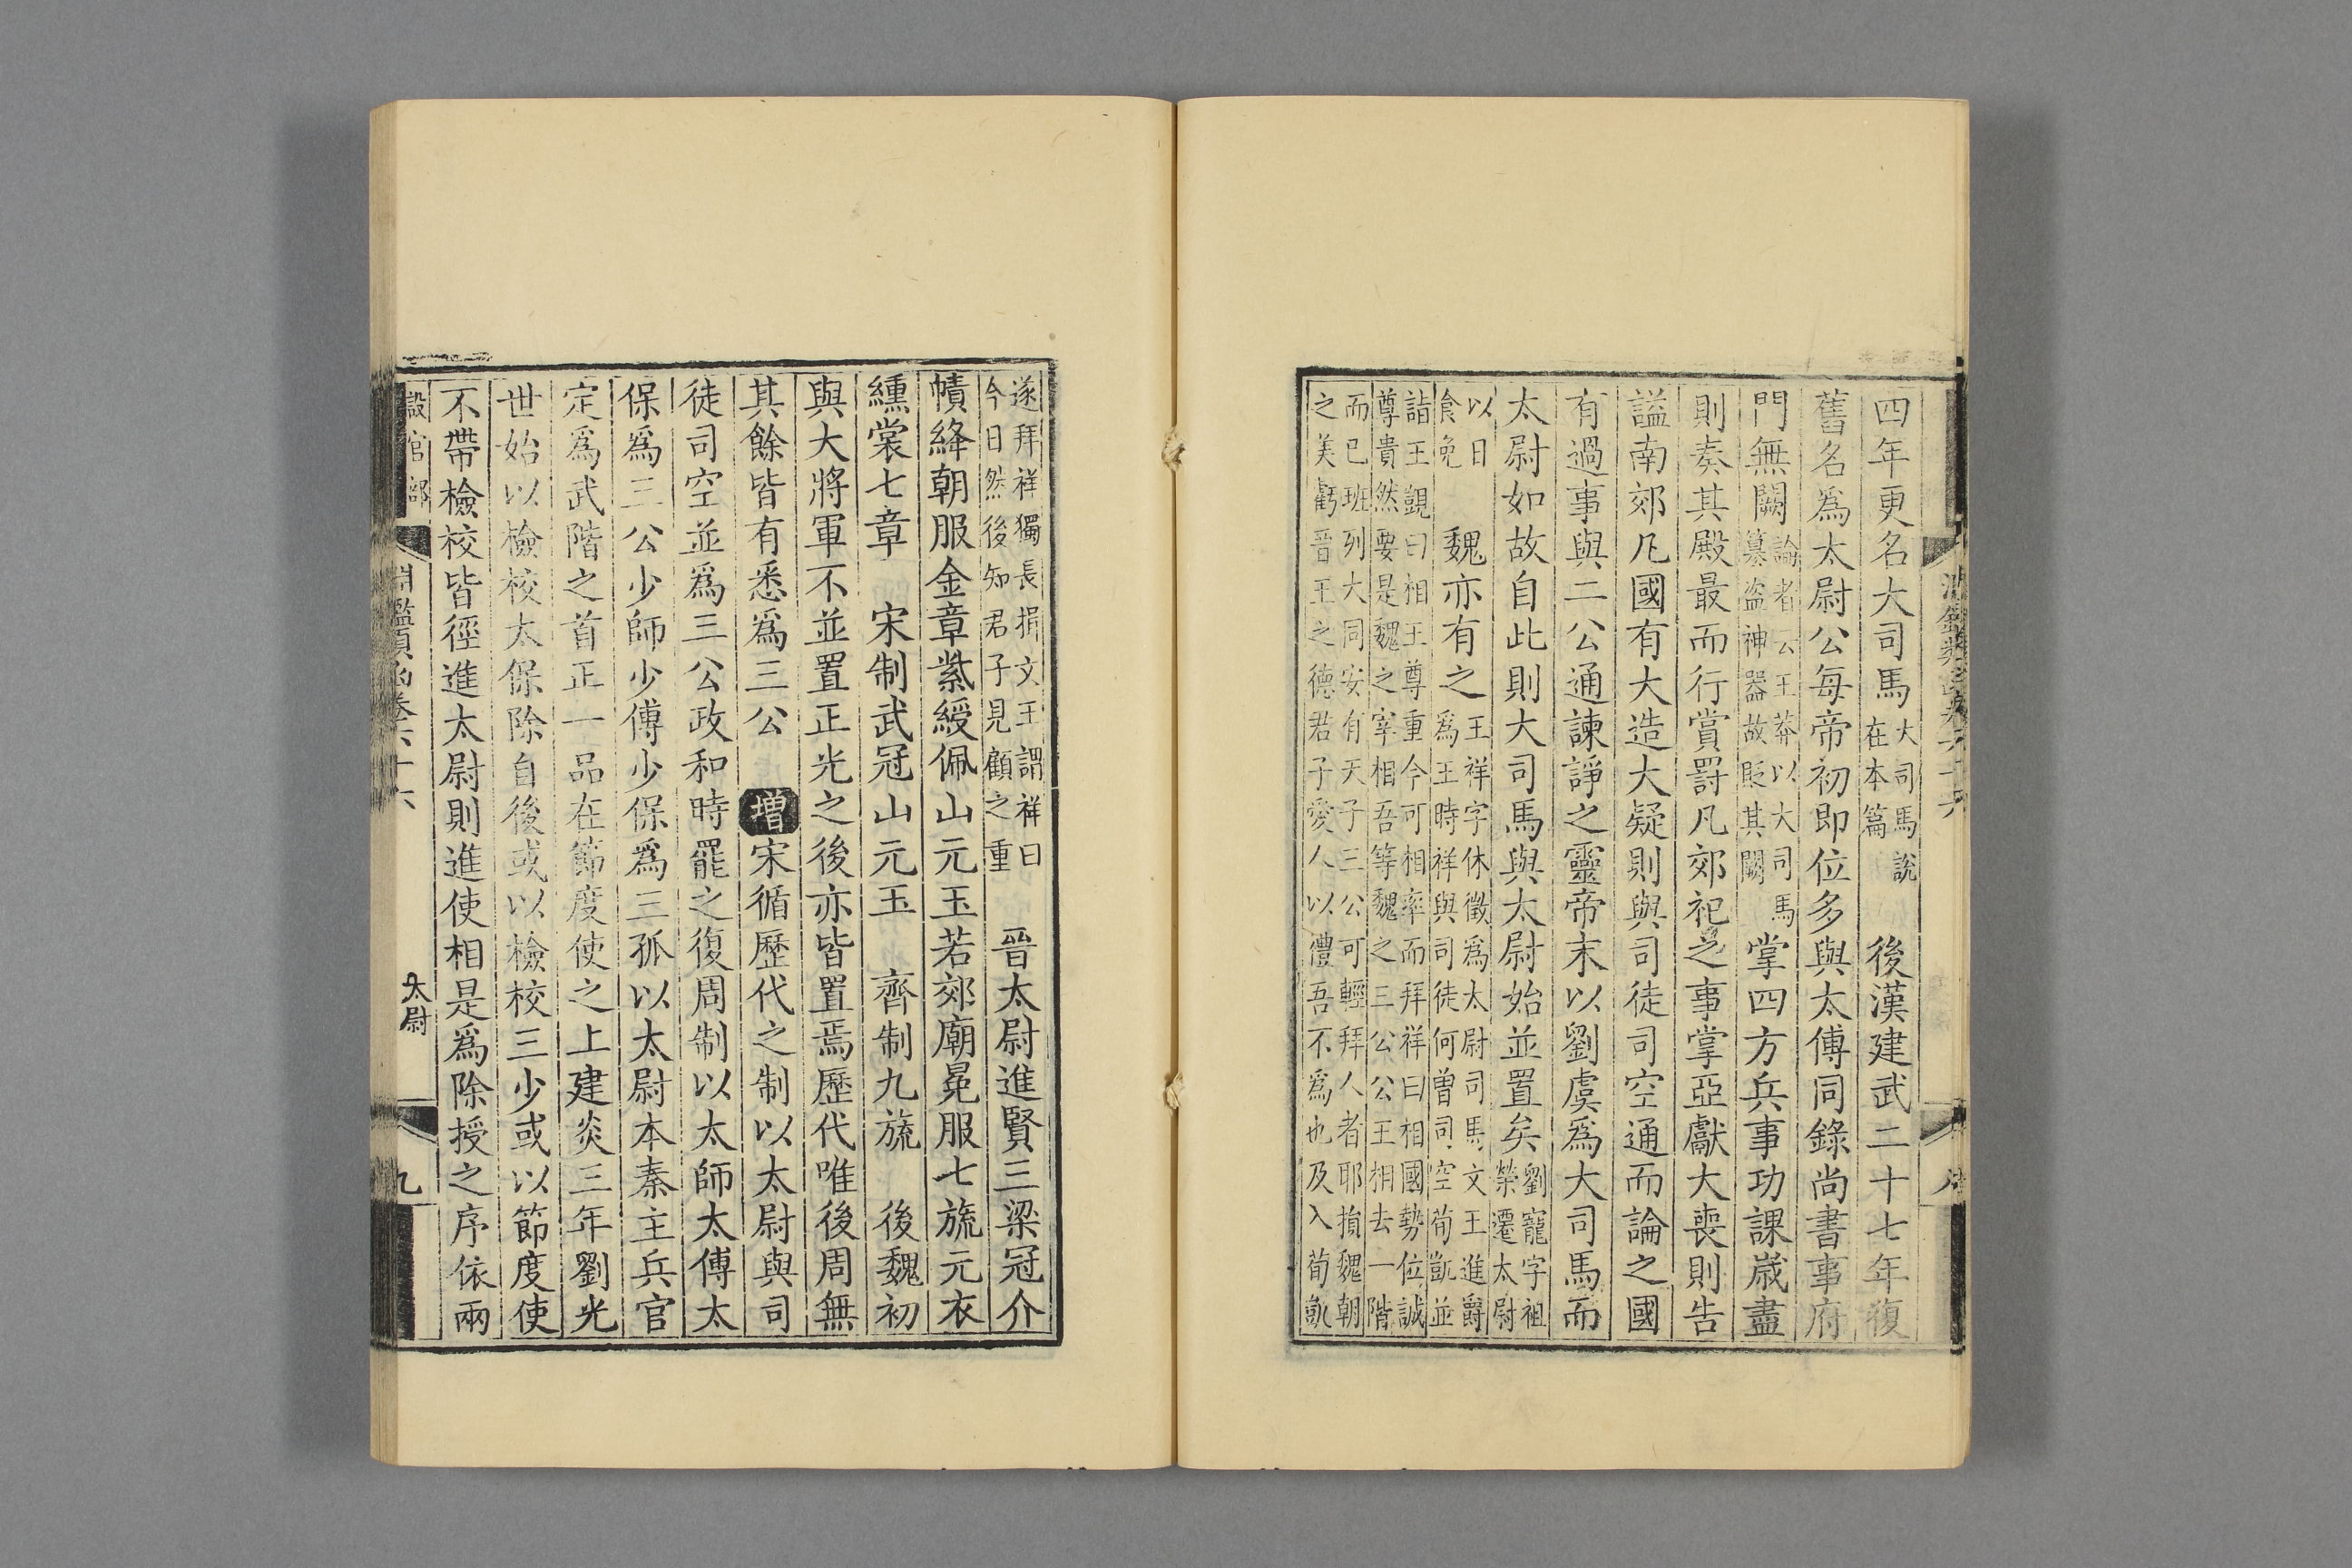 四年更名大司馬大司馬說在本篇後漢建武二十七年復
舊名爲太尉公每帝初即位多與太傅同錄尚書事府
門無闕論者云王莽以大司馬篡盜神器故貶其闕掌四方兵事功課歲盡
則奏其殿最而行賞罰凡郊祀之事掌亞獻大喪則告
謚南郊凡國有大造大疑則與司徒司空通而論之國
有過事與二公通諫諍之靈帝末以劉虞爲大司馬而
太尉如故自此則大司馬與太尉始並置矣劉寵字祖榮遷太尉
以日食免魏亦有之王祥字休徵爲太尉司馬文王進爵爲王時祥與司徒何曾司空荀凱並
詣王覬曰相王尊重今可相率而拜祥曰相國勢位誠尊貴然要是魏之宰相吾等魏之三公公王相去一階
而已班列大同安有天子三公可輕拜人者耶損魏朝之美虧晉王之德君子愛人以禮吾不爲也及入荀凱
遂拜祥獨長揖文王謂祥曰今日然後知君子見顧之重晉太尉進賢三梁冠介
幘絳朝服金章紫綬佩山元玉若郊廟冕服七旒元衣
纁裳七章 宋制武冠山元玉 齊制九旒 後魏初
與大將軍不並置正光之後亦皆置焉歷代唯後周無
其餘皆有悉爲三公 增宋循歷代之制以太尉與司
徒司空並爲三公政和時罷之復周制以太師太傅太
保爲三公少師少傅少保爲三孤以太尉本秦主兵官
定爲武階之首正一品在節度使之上建炎三年劉光
世始以檢校太保除自後或以檢校三少或以節度使
不帶檢校皆徑進太尉則進使相是爲除授之序依兩
設官部
淵鑑類函卷六十六
太尉
九